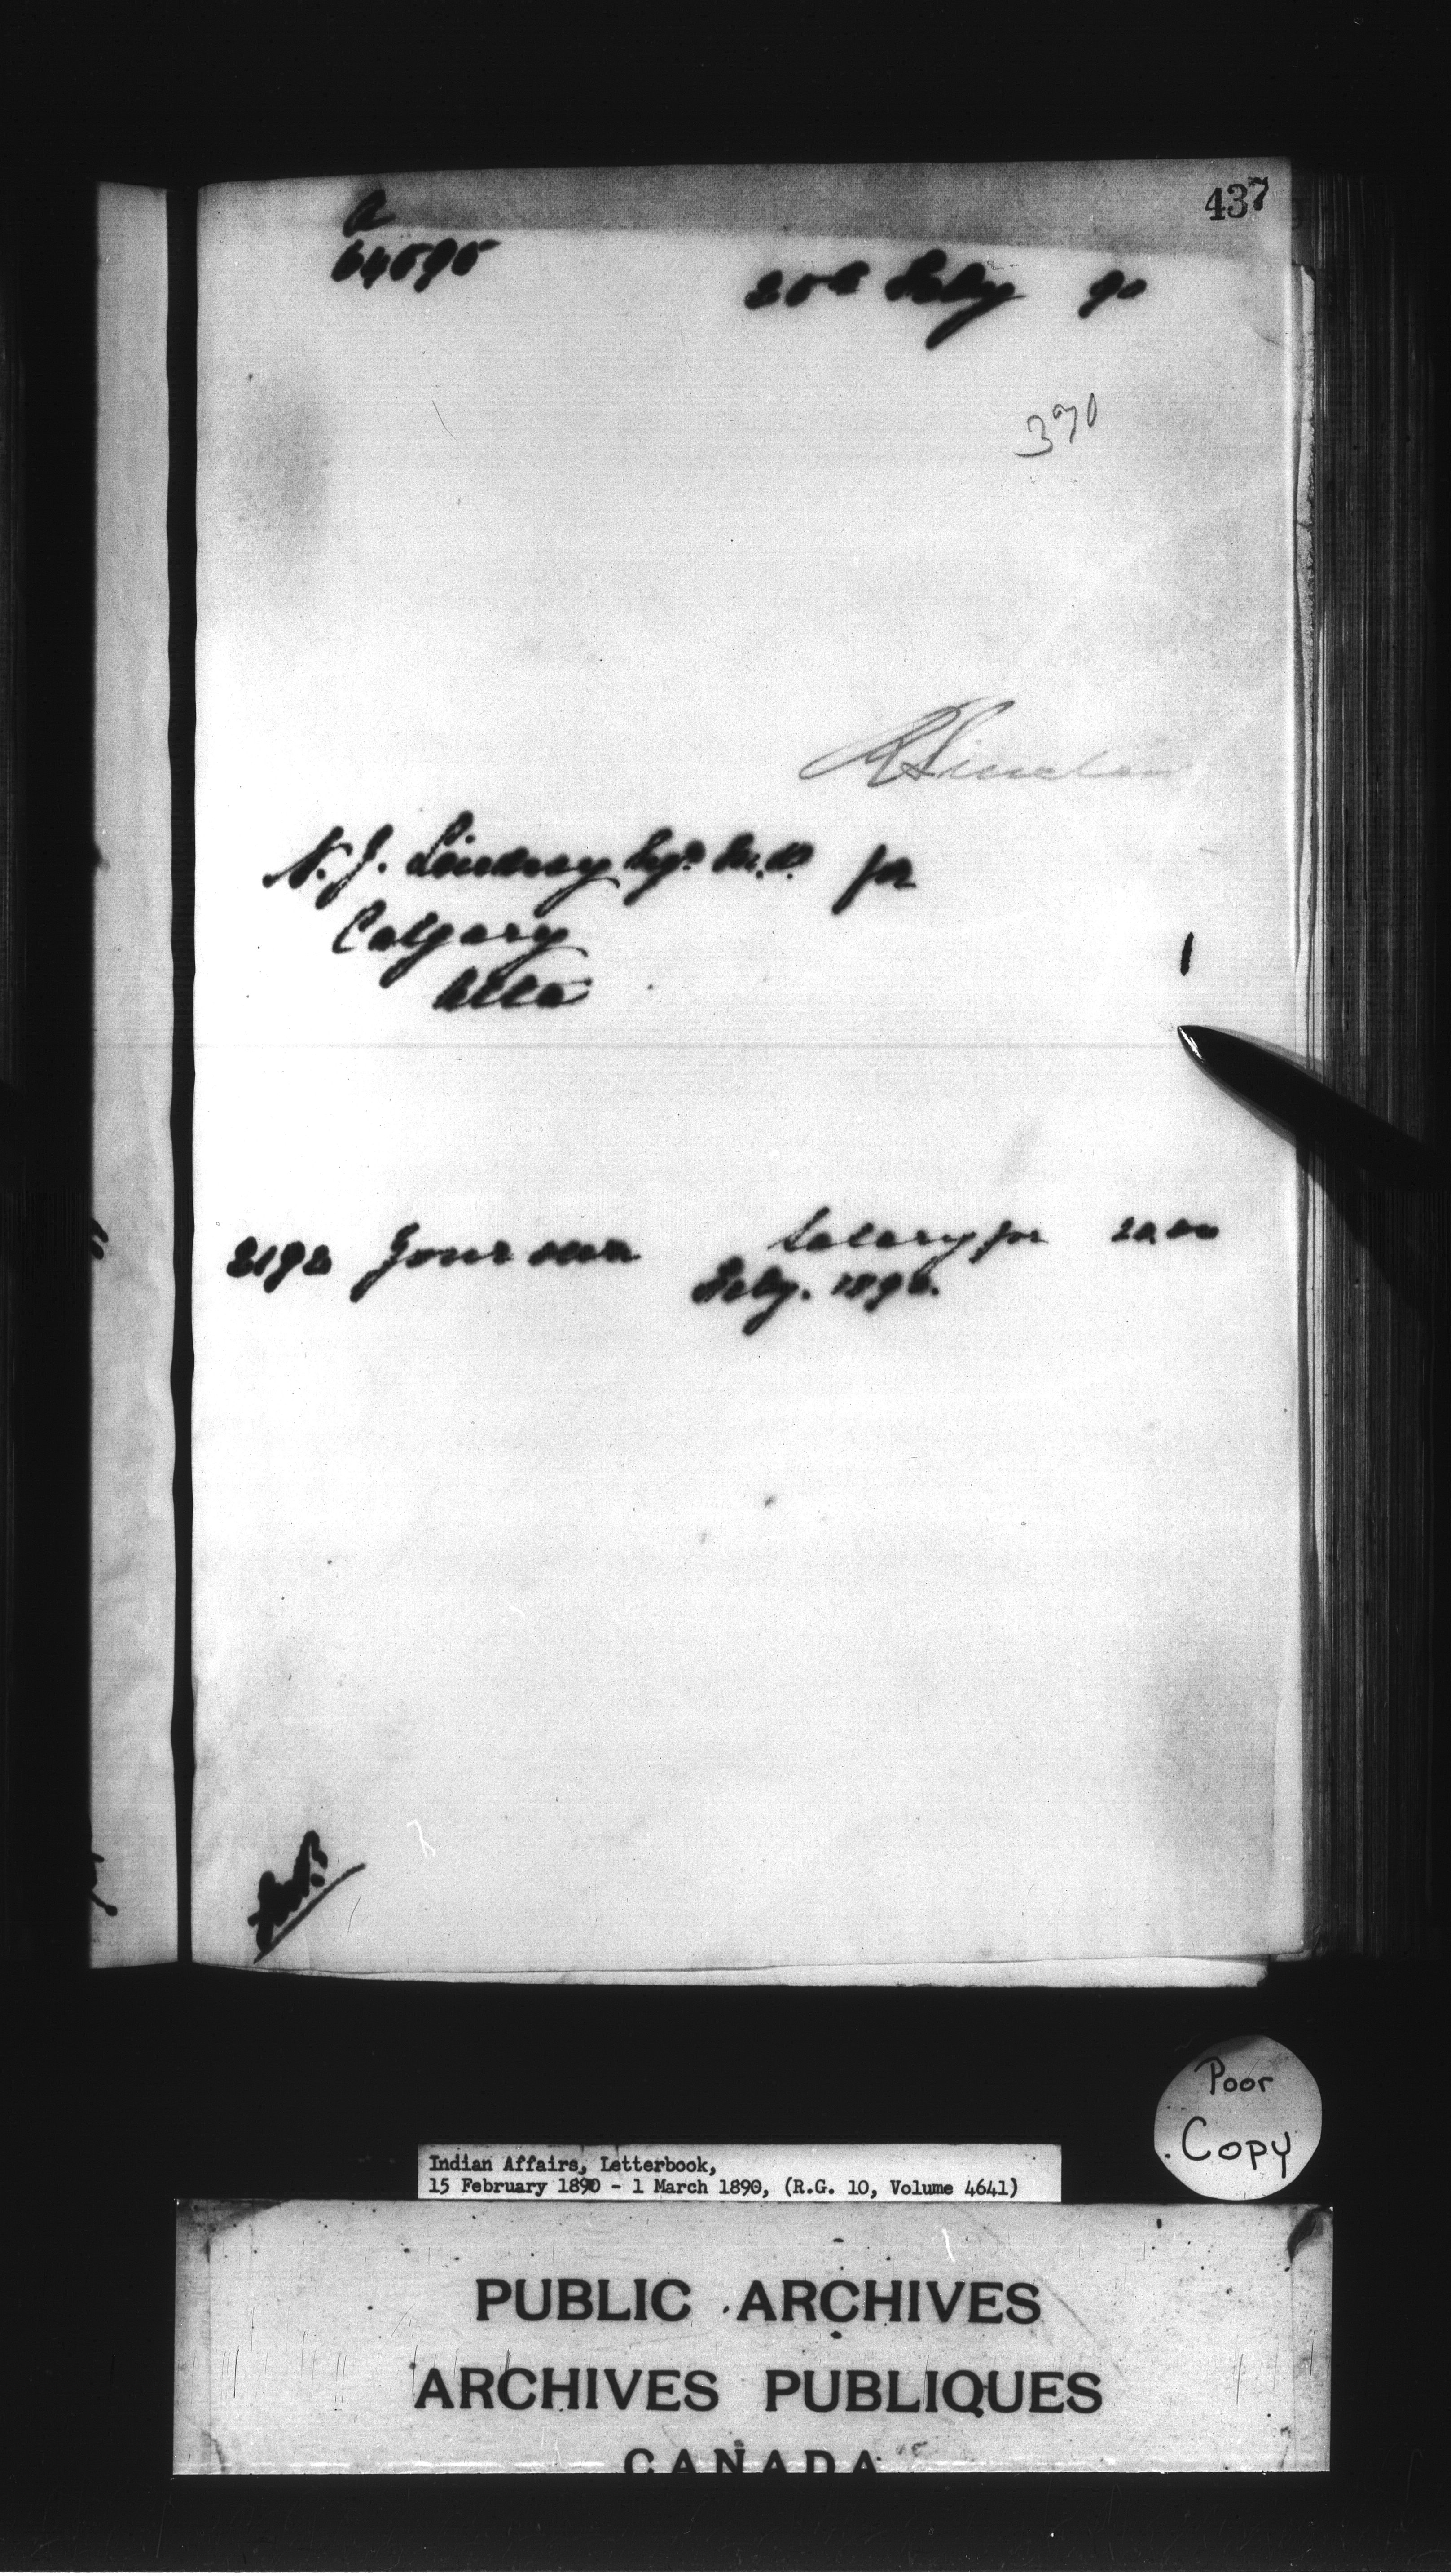 437
a
64595
25th Feby 90
370
R Sinclair
N. J. Lindsay Esqr M.D. for
Calgary
Alta
1
2192 Your own Salary for 20.00
Feby. 1890.
Poor
Copy
Indian Affairs, Letterbook,
15 February 1890 - 1 March 1890, (R.G. 10, Volume 4641)
PUBLIC ARCHIVES
ARCHIVES PUBLIQUES
CANADA